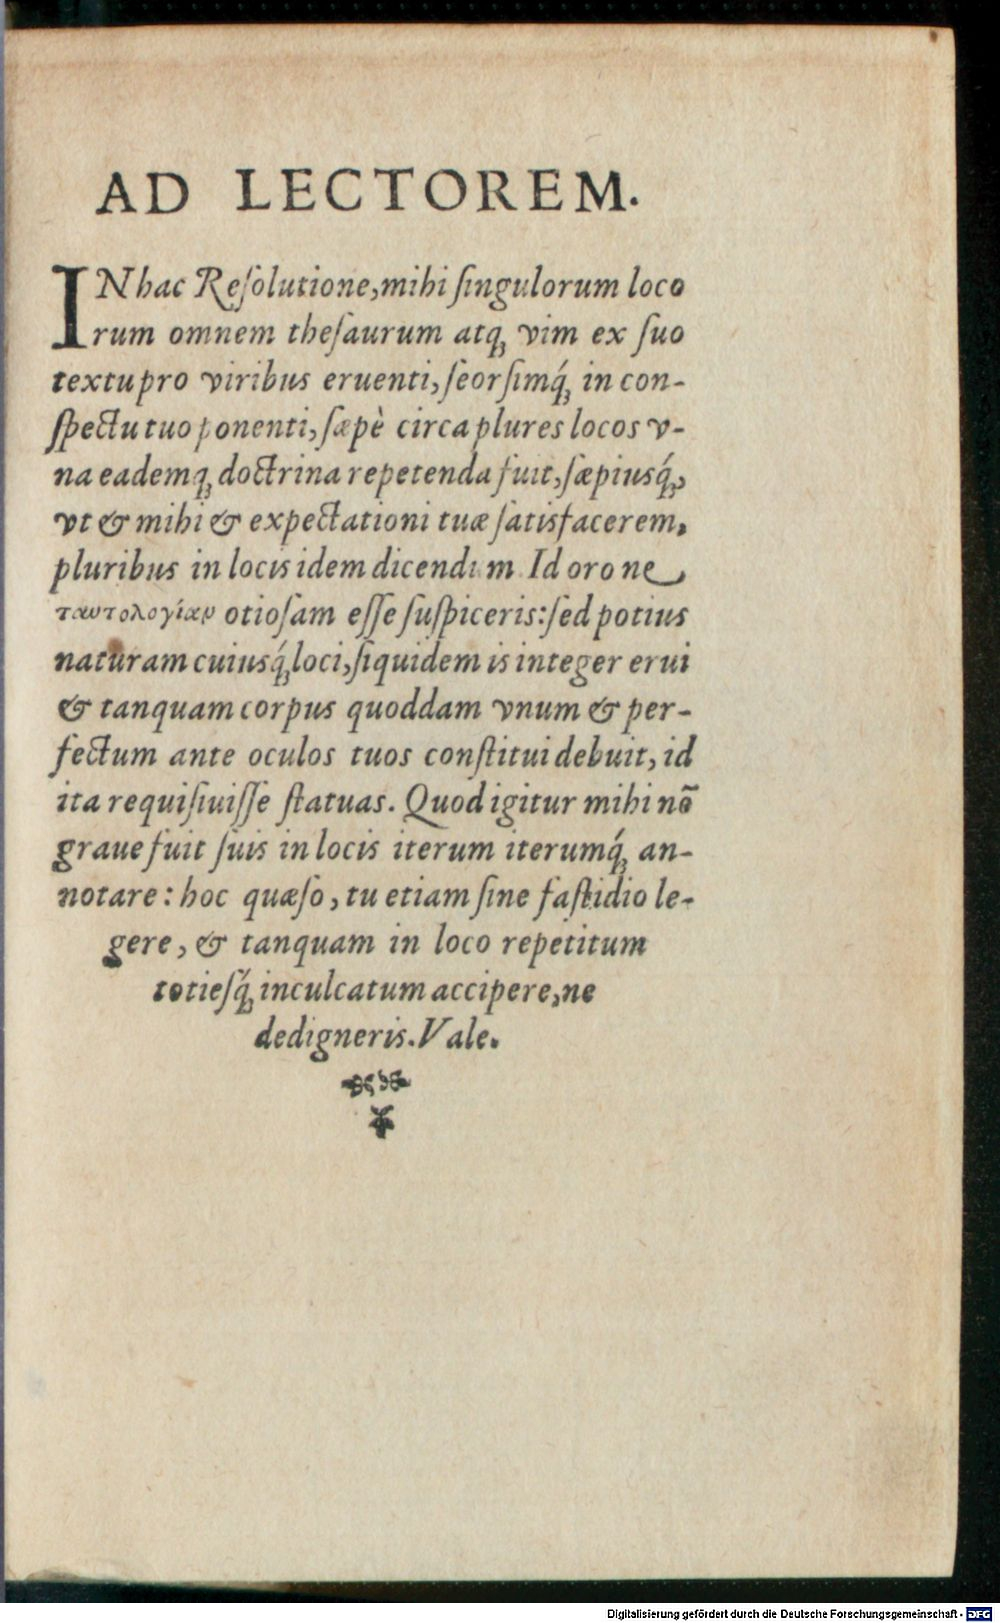 AD LECTOREM.
IN hac Reſolutione, mihi ſingulorum loco
rum omnem theſaurum atq; vim ex ſuo
textu pro viribus eruenti, ſeorſimq́; in con-
ſpectu tuo ponenti, ſæpè circa plures locos v-
na eademq; doctrina repetenda fuit, ſæpiusq́;,
vt & mihi & expectationi tuæ ſatisfacerem,
pluribus in locis idem dicendum Id oro ne
ταυτολογίαν otioſam eſſe ſuſpiceris: ſed potius
naturam cuiusq́; loci, ſiquidem is integer erui
& tanquam corpus quoddam vnum & per-
fectum ante oculos tuos conſtitui debuit, id
ita requiſiuiſſe ſtatuas. Quod igitur mihi nō
graue fuit ſuis in locis iterum iterumq́; an-
notare: hoc quæſo, tu etiam ſine faſtidio le-
gere, & tanquam in loco repetitum
totieſq́; inculcatum accipere, ne
dedigneris. Vale.
Digitalisierung gefördert durch die Deutsche Forschungsgemeinschaft - DFG